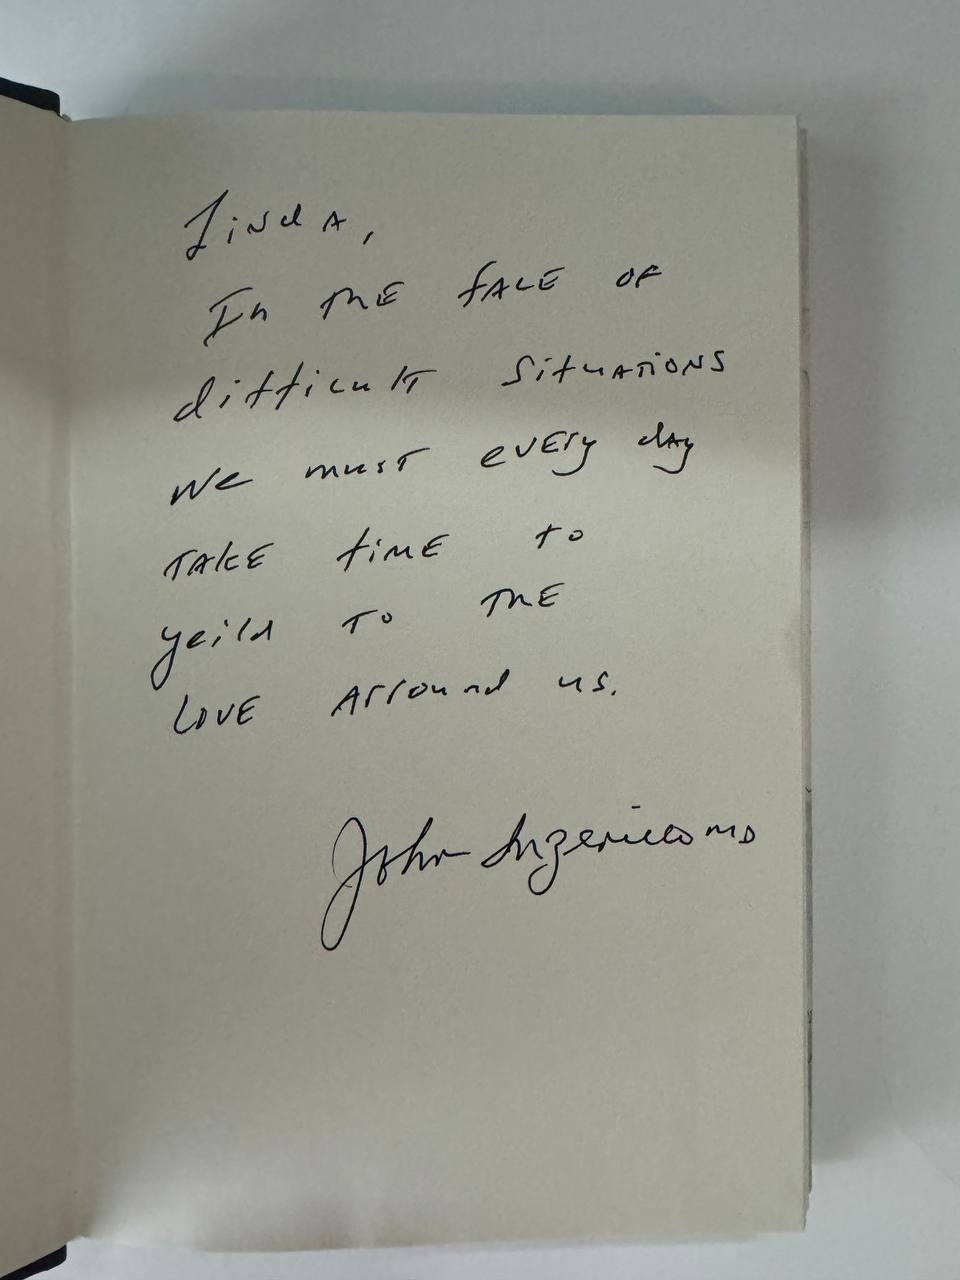 Linda,
In the face of
difficult situations
we must every day
take time to
yeild to the
love arround us.
John MD